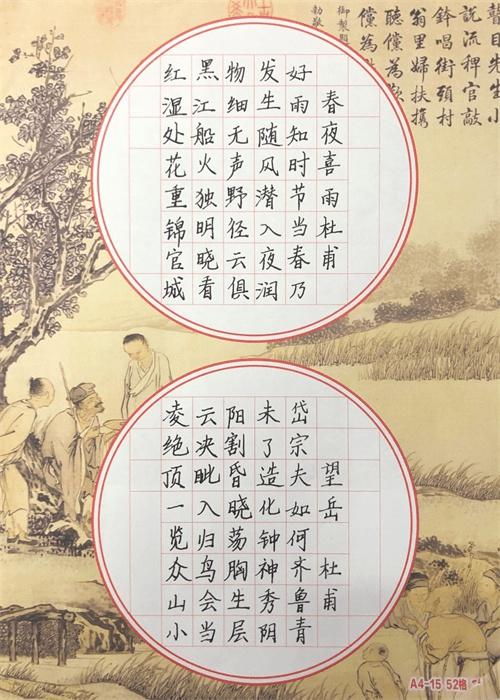 瞽目先生小
說流稗官敲
鉢唱街頭村
翁里婦扶攜
春夜喜雨 杜甫
好雨知时节当春乃
发生随风潜入夜润
物细无声野径云俱
黑江船火独明晓看
红湿处花重锦官城
望岳 杜甫
岱宗夫如何齐鲁青
未了造化钟神秀阴
阳割昏晓荡胸生层
云决眦入归鸟会当
凌绝顶一览众山小
A4-15 52格